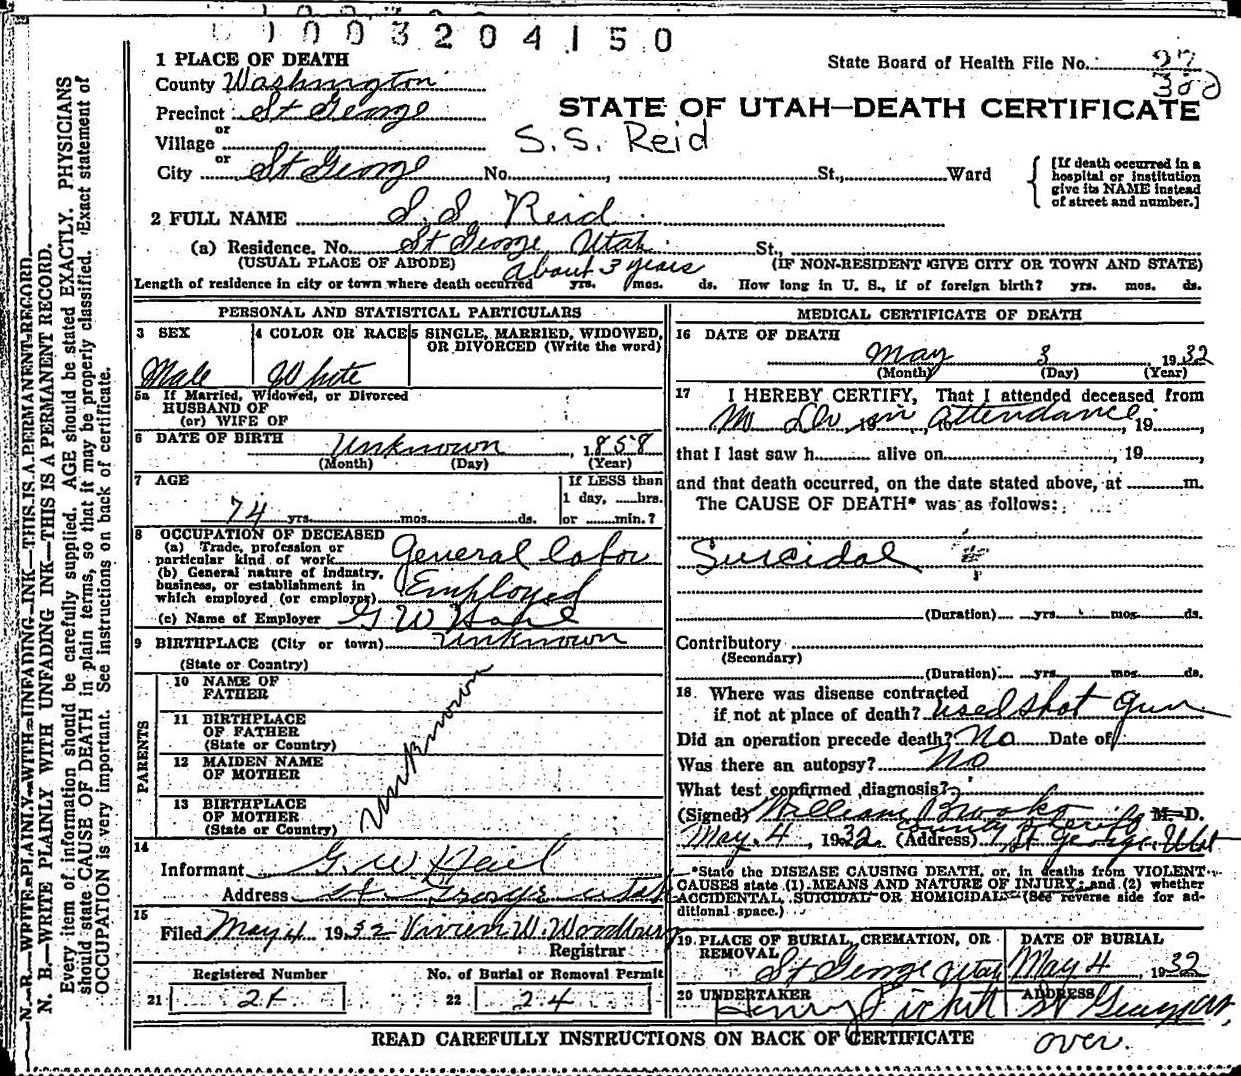 1003204150
1 PLACE OF DEATH
County Washington
State Board of Health File No. 27
300
Precinct St George
STATE OF UTAH—DEATH CERTIFICATE
or
Village
S.S. Reid
or
City St George No. , St., Ward
[If death occurred in a
hospital or institution
give its NAME instead
of street and number.]
2 FULL NAME S. S. Reid
(a) Residence. No. St George Utah St.,
(USUAL PLACE OF ABODE) (IF NON-RESIDENT GIVE CITY OR TOWN AND STATE)
about 3 years
Length of residence in city or town where death occurred yrs. mos. ds. How long in U. S., if of foreign birth? yrs. mos. ds.
PERSONAL AND STATISTICAL PARTICULARS
3 SEX 4 COLOR OR RACE 5 SINGLE, MARRIED, WIDOWED,
OR DIVORCED (Write the word)
Male White
5a If Married, Widowed, or Divorced
HUSBAND OF
(or) WIFE OF
6 DATE OF BIRTH Unknown , 1858
(Month) (Day) (Year)
7 AGE If LESS than
1 day, hrs.
74 yrs. mos. ds. or min.?
8 OCCUPATION OF DECEASED
(a) Trade, profession or
particular kind of work General labor
(b) General nature of industry,
business, or establishment in
which employed (or employer) Employed
(c) Name of Employer G W
9 BIRTHPLACE (City or town) Unknown
(State or Country)
PARENTS
10 NAME OF
FATHER
11 BIRTHPLACE
OF FATHER
(State or Country)
12 MAIDEN NAME
OF MOTHER
13 BIRTHPLACE
OF MOTHER
(State or Country)
Unknown
14
Informant G. W.
Address St. George Utah
15
Filed May 4 1932 Vivien W. Woodbury
Registrar
Registered Number No. of Burial or Removal Permit
21 24 22 24
MEDICAL CERTIFICATE OF DEATH
16 DATE OF DEATH
May 3 1932
(Month) (Day) (Year)
17 I HEREBY CERTIFY, That I attended deceased from
No Dr in attendance , 19 ,
that I last saw h alive on , 19 ,
and that death occurred, on the date stated above, at m.
The CAUSE OF DEATH* was as follows:
Suicidal
(Duration) yrs. mos. ds.
Contributory
(Secondary)
(Duration) yrs. mos. ds.
18. Where was disease contracted
if not at place of death? used shot gun
Did an operation precede death? No Date of
Was there an autopsy? No
What test confirmed diagnosis?
(Signed) William Brooks M. D.
County Sheriff
May. 4 , 1932. (Address) St George, Utah
*State the DISEASE CAUSING DEATH, or, in deaths from VIOLENT
CAUSES state (1) MEANS AND NATURE OF INJURY; and (2) whether
ACCIDENTAL, SUICIDAL OR HOMICIDAL. (See reverse side for ad-
ditional space.)
19. PLACE OF BURIAL, CREMATION, OR
REMOVAL DATE OF BURIAL
St George Utah May 4 , 1932
20 UNDERTAKER ADDRESS
Henry Pickett St George
over.
READ CAREFULLY INSTRUCTIONS ON BACK OF CERTIFICATE
N. B.—WRITE PLAINLY WITH UNFADING INK—THIS IS A PERMANENT RECORD.
N. B.—WRITE PLAINLY WITH UNFADING INK—THIS IS A PERMANENT RECORD.
Every item of information should be carefully supplied. AGE should be stated EXACTLY. PHYSICIANS
should state CAUSE OF DEATH in plain terms, so that it may be properly classified. Exact statement of
OCCUPATION is very important. See instructions on back of certificate.